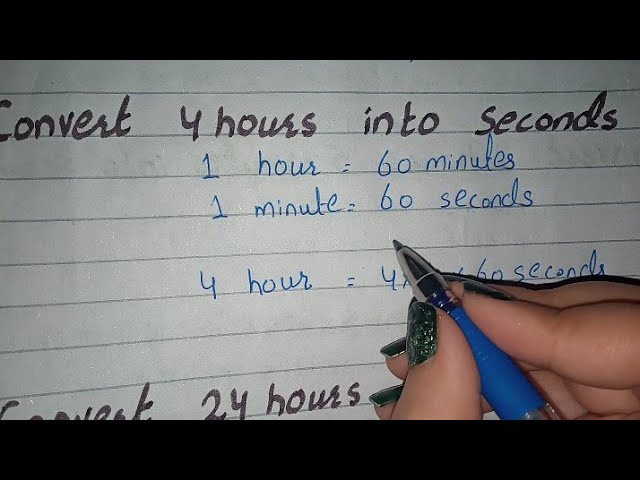 Convert 4 hours into seconds
1 hour = 60 minutes
1 minute = 60 seconds
4 hour = 4× ×60 seconds
Convert 24 hours